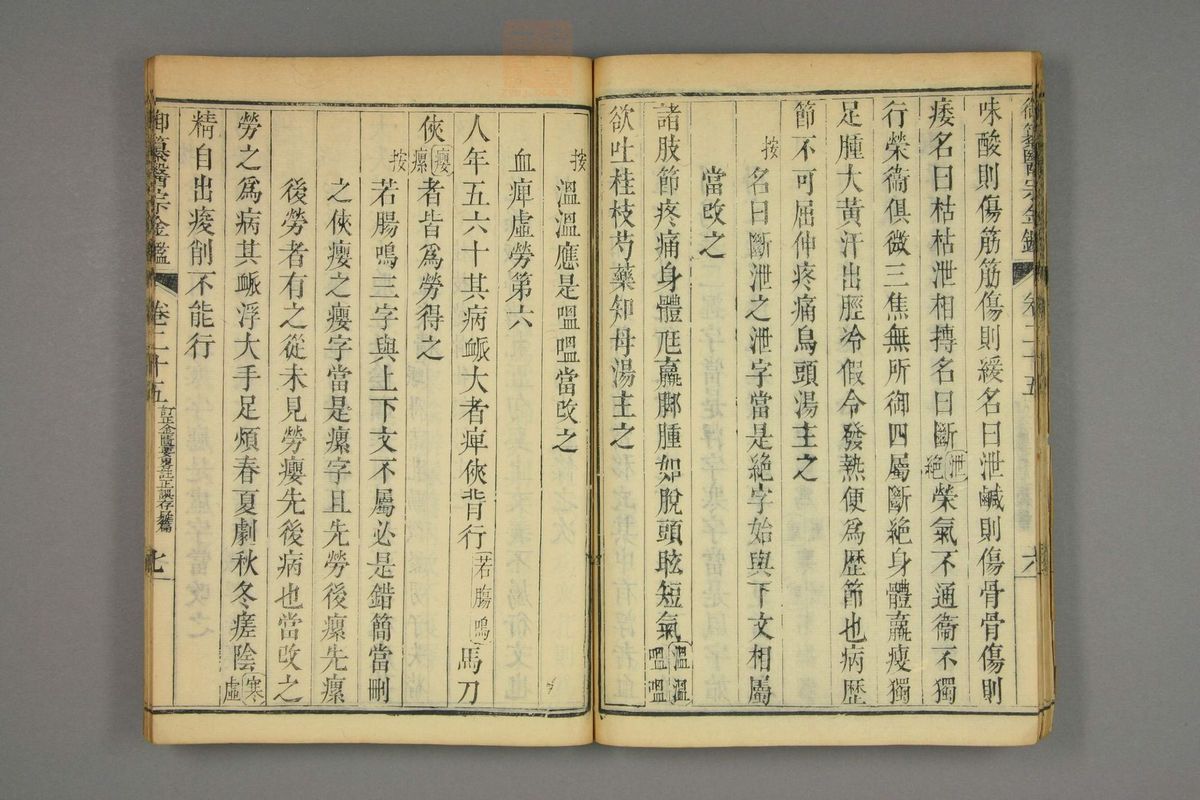 御纂醫宗金鑑 卷二十五 六
味酸則傷筋筋傷則緩名曰泄鹹則傷骨骨傷則
痿名曰枯枯泄相摶名曰斷泄絕榮氣不通衞不獨
行榮衞俱微三焦無所御四屬斷絕身體羸瘦獨
足腫大黃汗出脛冷假令發熱便爲歷節也病歷
節不可屈伸疼痛烏頭湯主之
按名曰斷泄之泄字當是絕字始與下文相屬
當改之
諸肢節疼痛身體尫羸脚腫如脫頭眩短氣溫溫嗢嗢
欲吐桂枝芍藥知母湯主之
按溫溫應是嗢嗢當改之
血痺虛勞第六
人年五六十其病脈大者痺俠背行若腸鳴馬刀
俠癭瘰者皆爲勞得之
按若腸鳴三字與上下文不屬必是錯簡當刪
之俠癭之癭字當是瘰字且先勞後瘰先瘰
後勞者有之從未見勞癭先後病也當改之
勞之爲病其脈浮大手足煩春夏劇秋冬瘥陰寒虛
精自出痠削不能行
御纂醫宗金鑑 卷二十五 訂正金匱要畧註正誤存疑篇 七